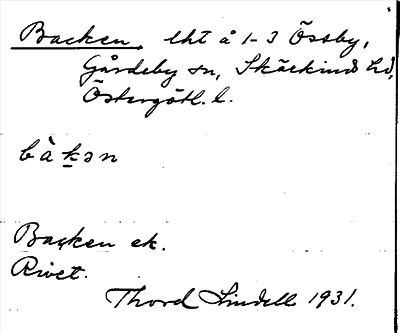 Backen, lht å 1-3 Össby,
Gårdeby sn, Skärkinds hd,
Östergötl. l.
bàkən
Backen ek.
Rivet.
Thord Lindell 1931.